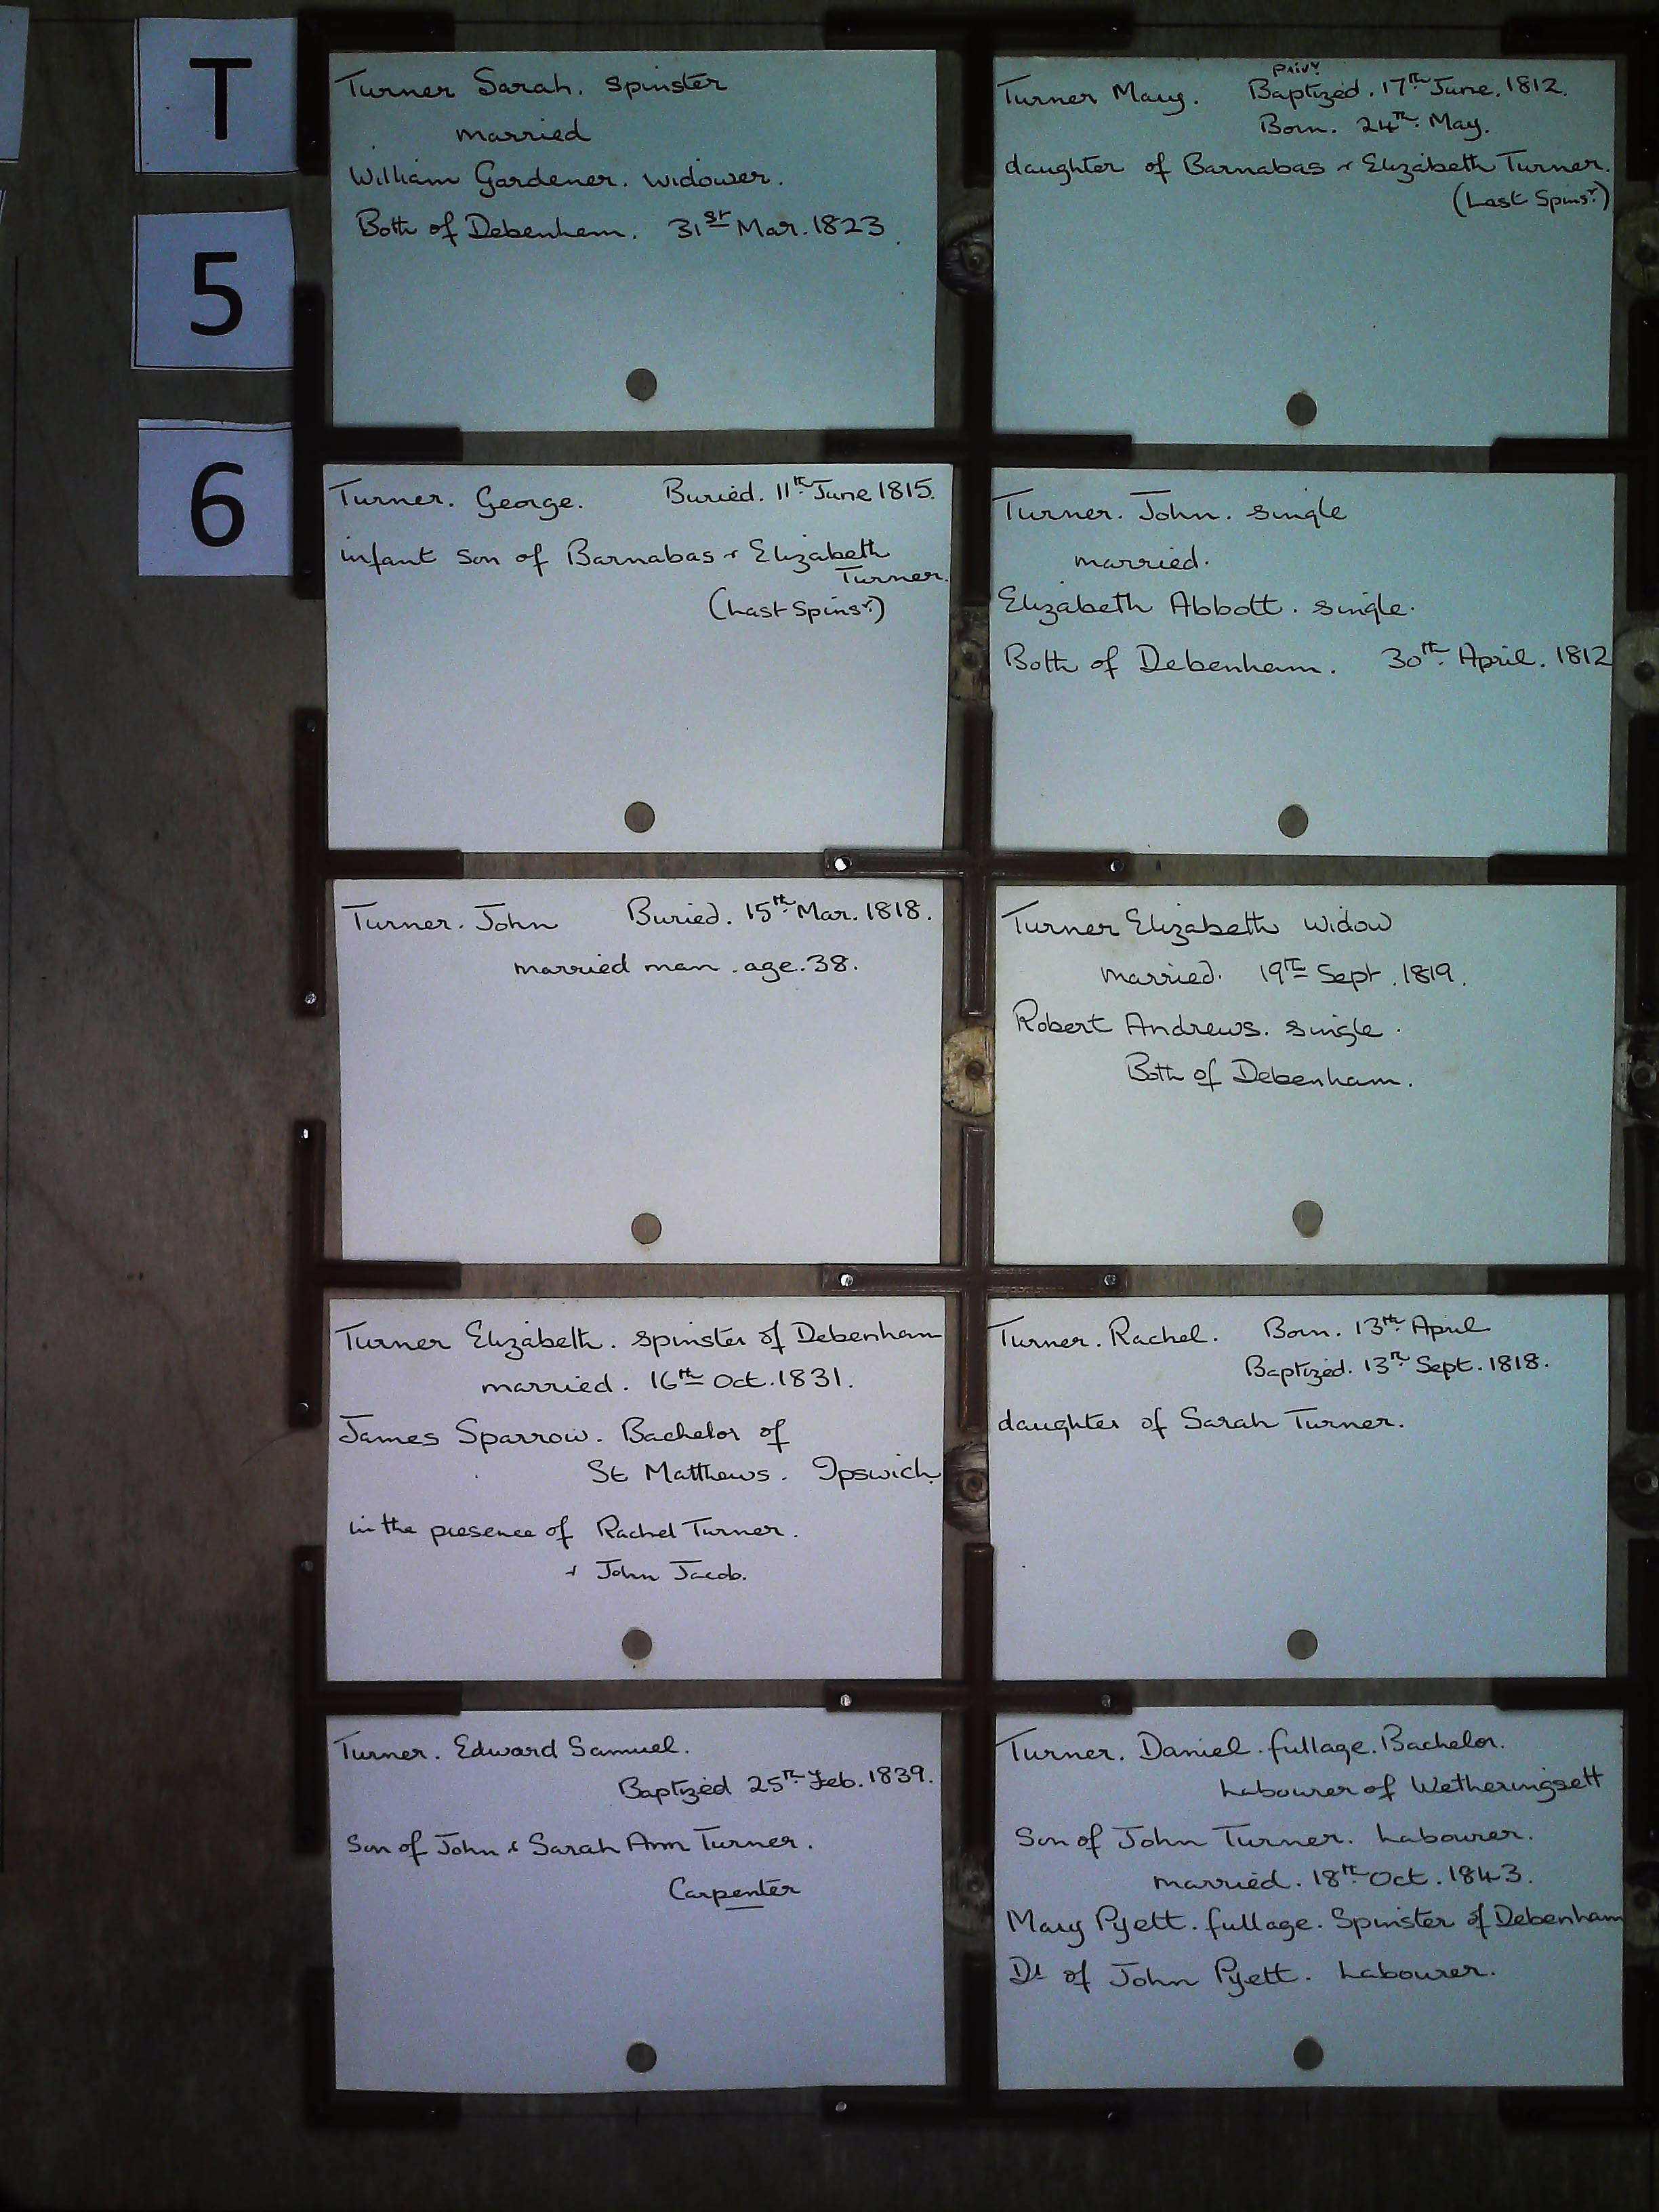 T
5
6
Turner Sarah. Spinster
married
William Gardener. widower.
Both of Debenham. 31st Mar. 1823.
Privy
Turner Mary. Baptized. 17th June. 1812.
Born. 24th May.
daughter of Barnabas & Elizabeth Turner.
(Last Spinsr.)
Turner. George. Buried. 11th June 1815.
infant son of Barnabas & Elizabeth
Turner.
(Last Spinsr.)
Turner. John. single
married.
Elizabeth Abbott. single.
Both of Debenham. 30th April. 1812
Turner. John Buried. 15th Mar. 1818.
married man. age. 38.
Turner Elizabeth widow
married. 19th Sept. 1819.
Robert Andrews. single.
Both of Debenham.
Turner Elizabeth. spinster of Debenham
married. 16th Oct. 1831.
James Sparrow. Bachelor of
St Matthews. Ipswich
in the presence of Rachel Turner.
& John Jacob.
Turner. Rachel. Born. 13th April
Baptized. 13th Sept. 1818.
daughter of Sarah Turner.
Turner. Edward Samuel.
Baptized 25th Feb. 1839.
Son of John & Sarah Ann Turner.
Carpenter
Turner. Daniel. fullage. Bachelor.
Labourer of Wetheringsett
Son of John Turner. Labourer.
married. 18th Oct. 1843.
Mary Pyett. fullage. Spinster of Debenham
Dr of John Pyett. Labourer.